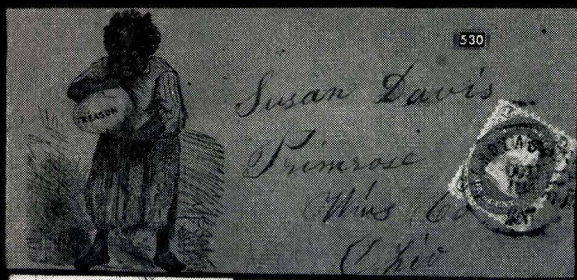 530
TREASON
Susan Davis
Primrose
Wms Co
Ohio